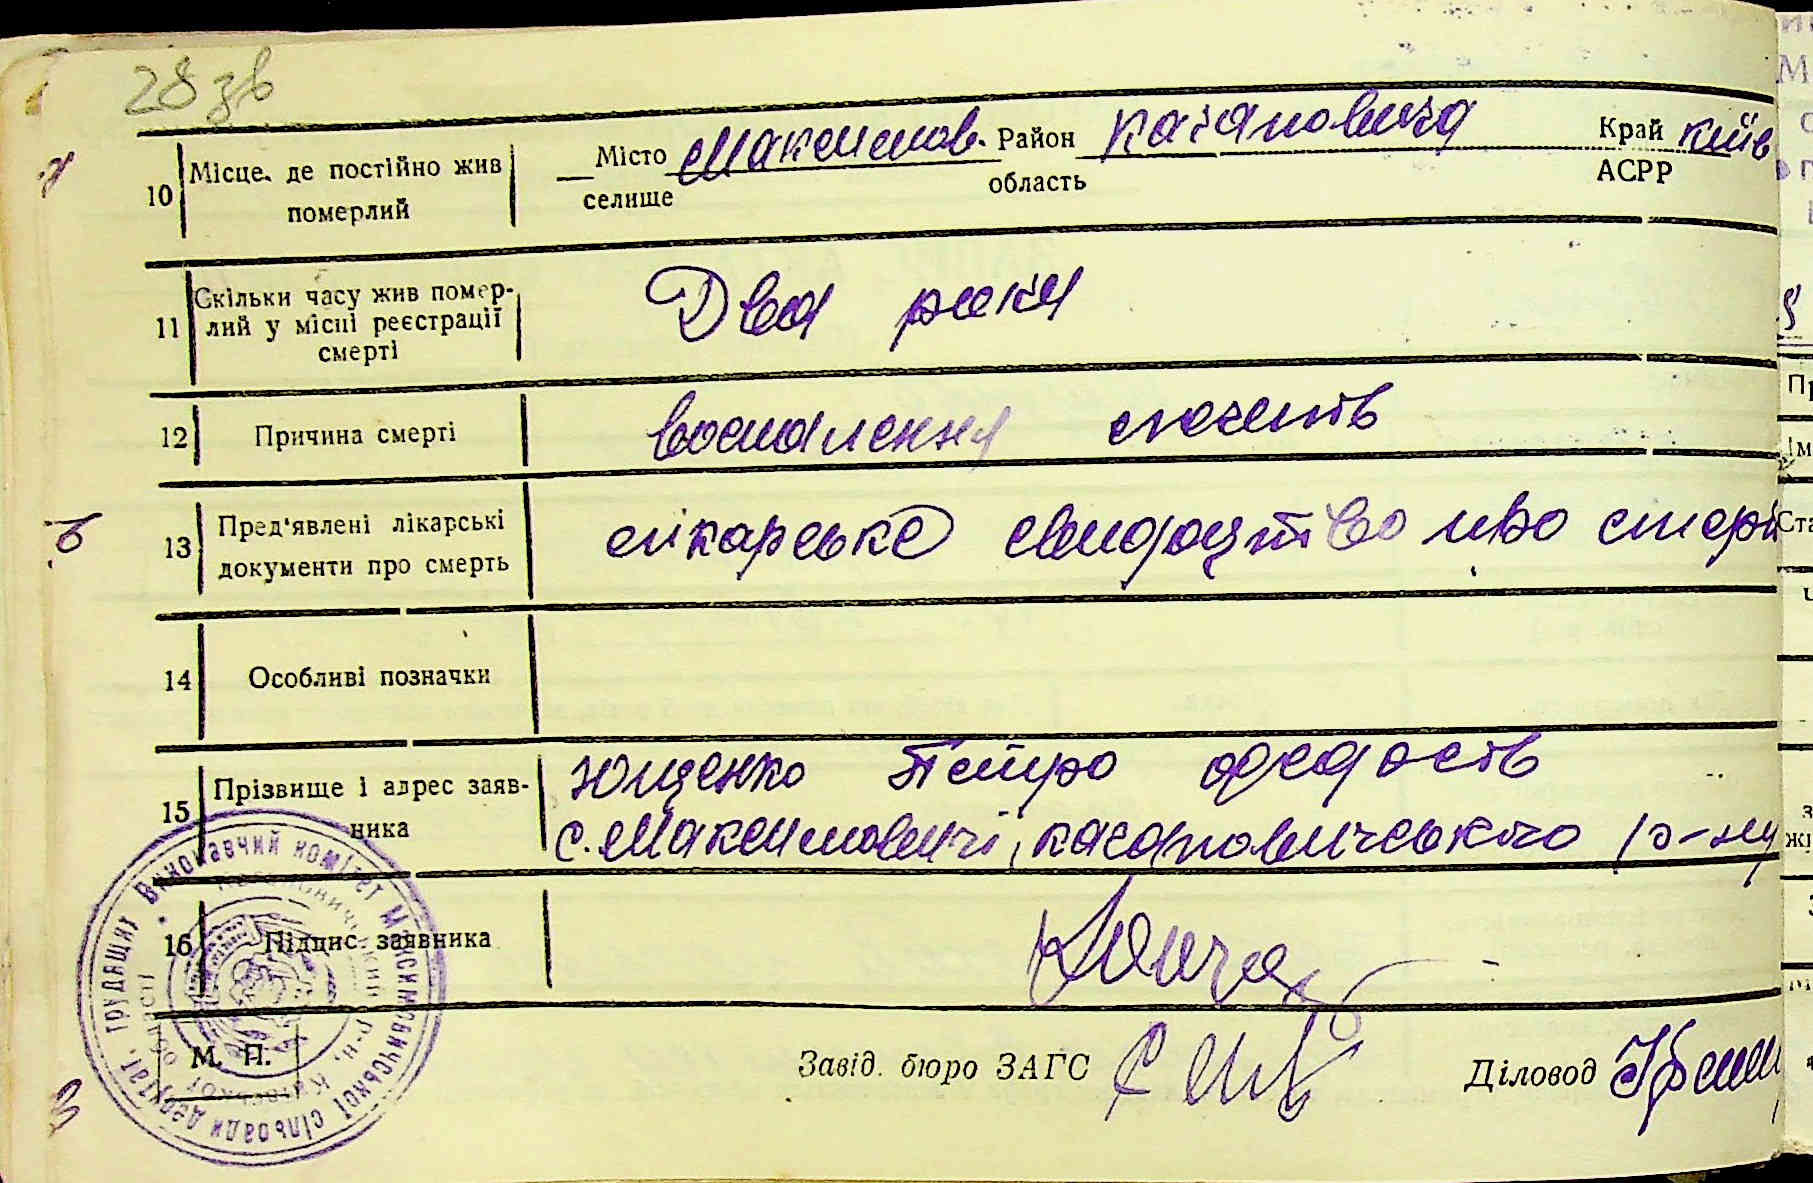 28 зв
10 Місце, де постійно жив померлий Місто селище Максимов. Район область Кагановича Край АСРР Київ
11 Скільки часу жив померлий у місці реєстрації смерті Два роки
12 Причина смерті воспалення печень
13 Пред'явлені лікарські документи про смерть лікарське свидоцтіво про смерт
14 Особливі позначки
15 Прізвище і адрес заявника Ющенко Петро
с. Максимовичі, Кагановичського р-ну
16 Підпис заявника
М. П.
Виконавчий комітет Максимовичської сільради депутат. трудящих
Кагановичський р-н, Київської області
Завід. бюро ЗАГС
Діловод